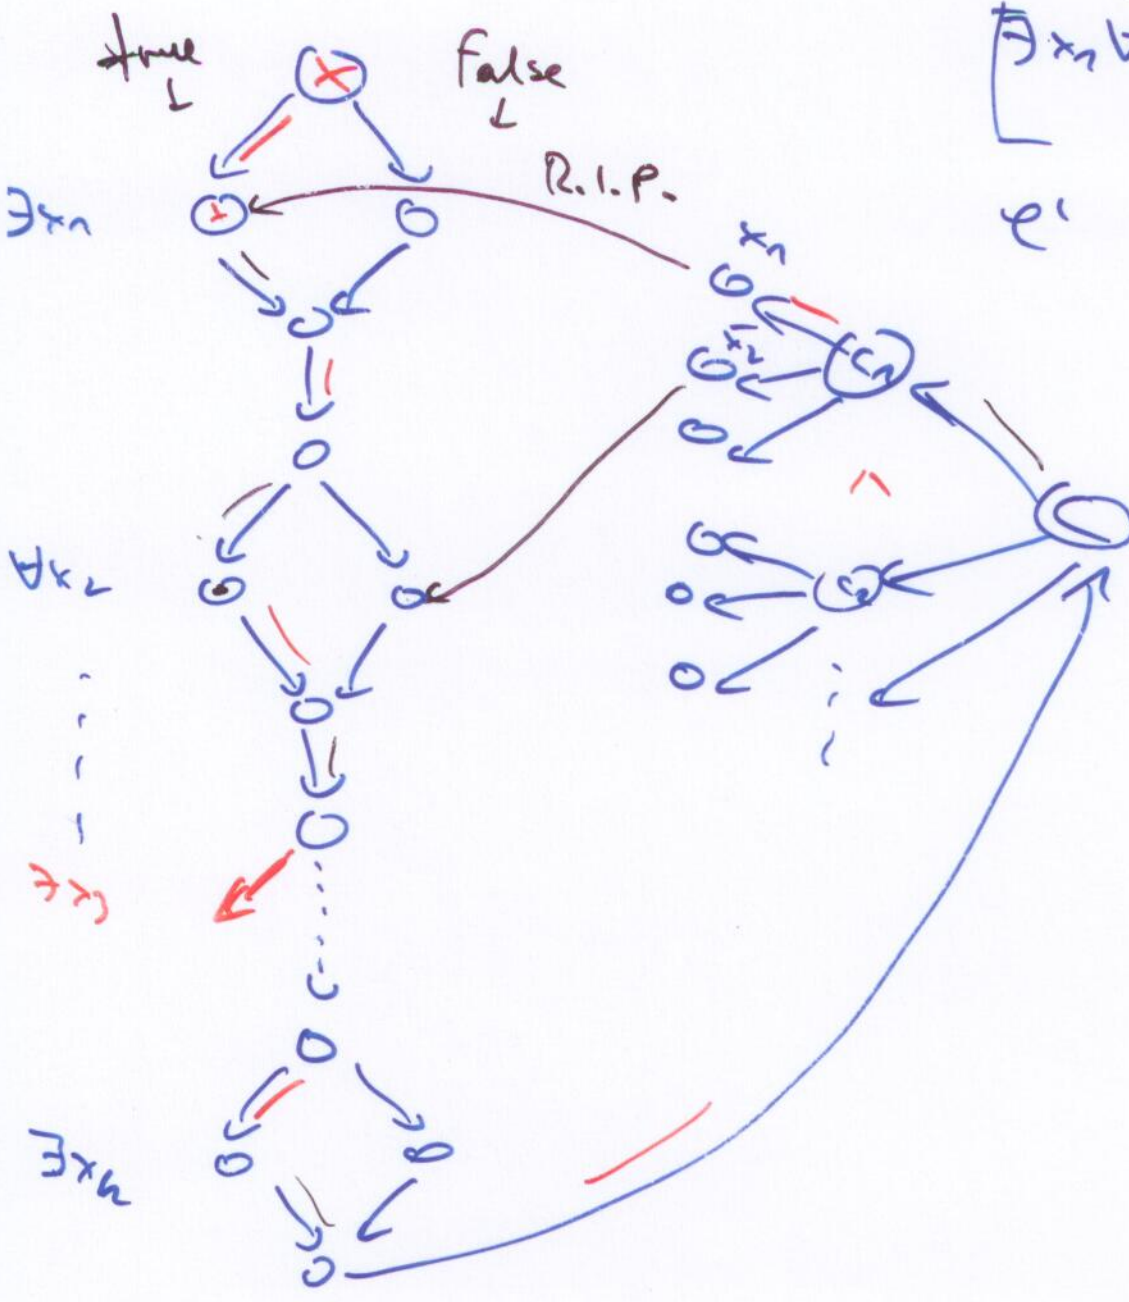 true
False
∃x₁ ∀
φ'
R.I.P.
∃x₁
x₁
x̄₂
C₁
∧
∀x₂
C₂
∃x₃
∃xₙ